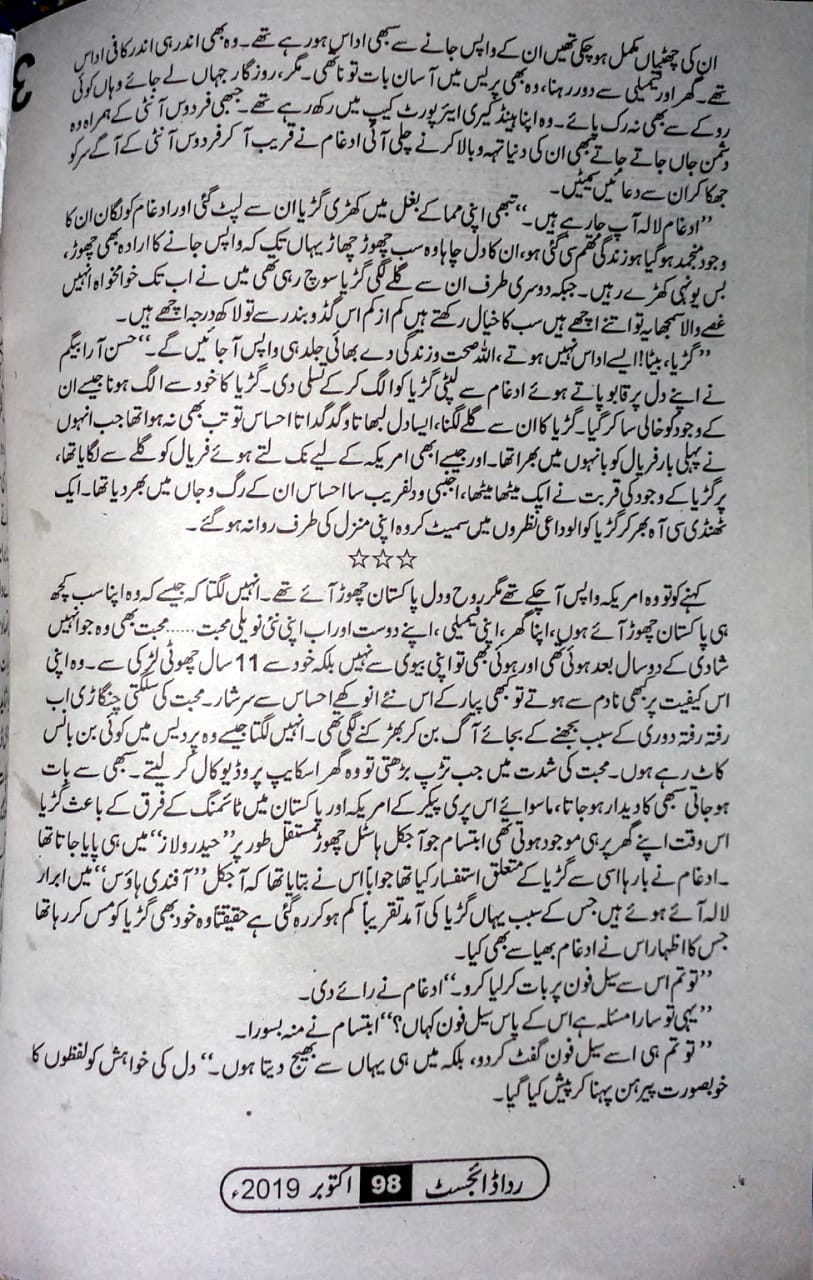 ان کی چھٹیاں مکمل ہو چکی تھیں ان کے واپس جانے سے سبھی اداس ہو رہے تھے۔ وہ بھی اندر ہی اندر کافی اداس
تھے۔ گھر اور فیملی سے دور رہنا، وہ بھی پریس میں آسان بات تو نا تھی۔ مگر، روزگار جہاں لے جائے وہاں کوئی
روکے سے بھی نہ رک پائے۔ وہ اپنا ہینڈ کیری ایئرپورٹ کیپ میں رکھ رہے تھے۔ جبھی فردوس آنٹی کے ہمراہ وہ
دشمن جاں جاتے جاتے بھی ان کی دنیا تہہ و بالا کرنے چلی آئی ادغام نے قریب آ کر فردوس آنٹی کے آگے سر کو
جھکا کر ان سے دعائیں سمیٹیں۔
’’ادغام لالہ آپ جا رہے ہیں۔‘‘ تبھی اپنی مما کے بغل میں کھڑی گڑیا ان سے لپٹ گئی اور ادغام کو لگا ان کا
وجود منجمد ہو گیا ہو زندگی تھم سی گئی ہو، ان کا دل چاہا وہ سب چھوڑ چھاڑ یہاں تک کہ واپس جانے کا ارادہ بھی چھوڑ،
بس یونہی کھڑے رہیں۔ جبکہ دوسری طرف ان سے گلے لگی گڑیا سوچ رہی تھی میں نے اب تک خوامخواہ انہیں
غصے والا سمجھا یہ تو اتنے اچھے ہیں سب کا خیال رکھتے ہیں کم از کم اس گڈو بندر سے تو لاکھ درجہ اچھے ہیں۔
’’گڑیا، بیٹا! ایسے اداس نہیں ہوتے، اللہ صحت و زندگی دے بھائی جلد ہی واپس آ جائیں گے۔‘‘ حسن آرا بیگم
نے اپنے دل پر قابو پاتے ہوئے ادغام سے لپٹی گڑیا کو الگ کر کے تسلی دی۔ گڑیا کا خود سے الگ ہونا جیسے ان
کے وجود کو خالی سا کر گیا۔ گڑیا کا ان سے گلے لگنا، ایسا دل لبھاتا و گدگداتا احساس تو تب بھی نہ ہوا تھا جب انہوں
نے پہلی بار فریال کو بانہوں میں بھرا تھا۔ اور جیسے ابھی امریکہ کے لیے نک لتے ہوئے فریال کو گلے سے لگایا تھا،
پر گڑیا کے وجود کی قربت نے ایک میٹھا میٹھا، اجنبی و دلفریب سا احساس ان کے رگ و جاں میں بھر دیا تھا۔ ایک
ٹھنڈی سی آہ بھر کر گڑیا کو الوداعی نظروں میں سمیٹ کر وہ اپنی منزل کی طرف روانہ ہو گئے۔
☆☆☆
کہنے کو تو وہ امریکہ واپس آ چکے تھے مگر روح و دل پاکستان چھوڑ آئے تھے۔ انہیں لگتا کہ جیسے کہ وہ اپنا سب کچھ
ہی پاکستان چھوڑ آئے ہوں، اپنا گھر، اپنی فیملی، اپنے دوست اور اب اپنی نئی نویلی محبت...... محبت بھی وہ جو انہیں
شادی کے دو سال بعد ہوئی تھی اور ہوئی بھی تو اپنی بیوی سے نہیں بلکہ خود سے 11 سال چھوٹی لڑکی سے۔ وہ اپنی
اس کیفیت پر بھی نادم سے ہوتے تو کبھی پیار کے اس نئے انوکھے احساس سے سرشار۔ محبت کی سلگتی چنگاڑی اب
رفتہ رفتہ دوری کے سبب بجھنے کے بجائے آگ بن کر بھڑکنے لگی تھی۔ انہیں لگتا جیسے وہ پردیس میں کوئی بن باس
کاٹ رہے ہوں۔ محبت کی شدت میں جب تڑپ بڑھتی تو وہ گھر اسکایپ پر وڈیو کال کر لیتے۔ سبھی سے بات
ہو جاتی سبھی کا دیدار ہو جاتا، ماسوائے اس پری پیکر کے امریکہ اور پاکستان میں ٹائمنگ کے فرق کے باعث گڑیا
اس وقت اپنے گھر پر ہی موجود ہوتی تھی ابتسام جو آجکل ہاسٹل چھوڑ مستقل طور پر ’’حیدر ولاز‘‘ میں ہی پایا جاتا تھا
۔ ادغام نے بارہا اسی سے گڑیا کے متعلق استفسار کیا تھا جواباً اس نے بتایا تھا کہ آجکل ’’آفندی ہاؤس‘‘ میں ابرار
لالہ آئے ہوئے ہیں جس کے سبب یہاں گڑیا کی آمد تقریباً کم ہو کر رہ گئی ہے حقیقتاً وہ خود بھی گڑیا کو مس کر رہا تھا
جس کا اظہار اس نے ادغام بھیا سے بھی کیا۔
’’تو تم اس سے سیل فون پر بات کر لیا کرو۔‘‘ ادغام نے رائے دی۔
’’یہی تو سارا مسئلہ ہے اس کے پاس سیل فون کہاں؟‘‘ ابتسام نے منہ بسورا۔
’’تو تم ہی اسے سیل فون گفٹ کر دو، بلکہ میں ہی یہاں سے بھیج دیتا ہوں۔‘‘ دل کی خواہش کو لفظوں کا
خوبصورت پیرہن پہنا کر پیش کیا گیا۔
ردا ڈائجسٹ 98 اکتوبر 2019ء